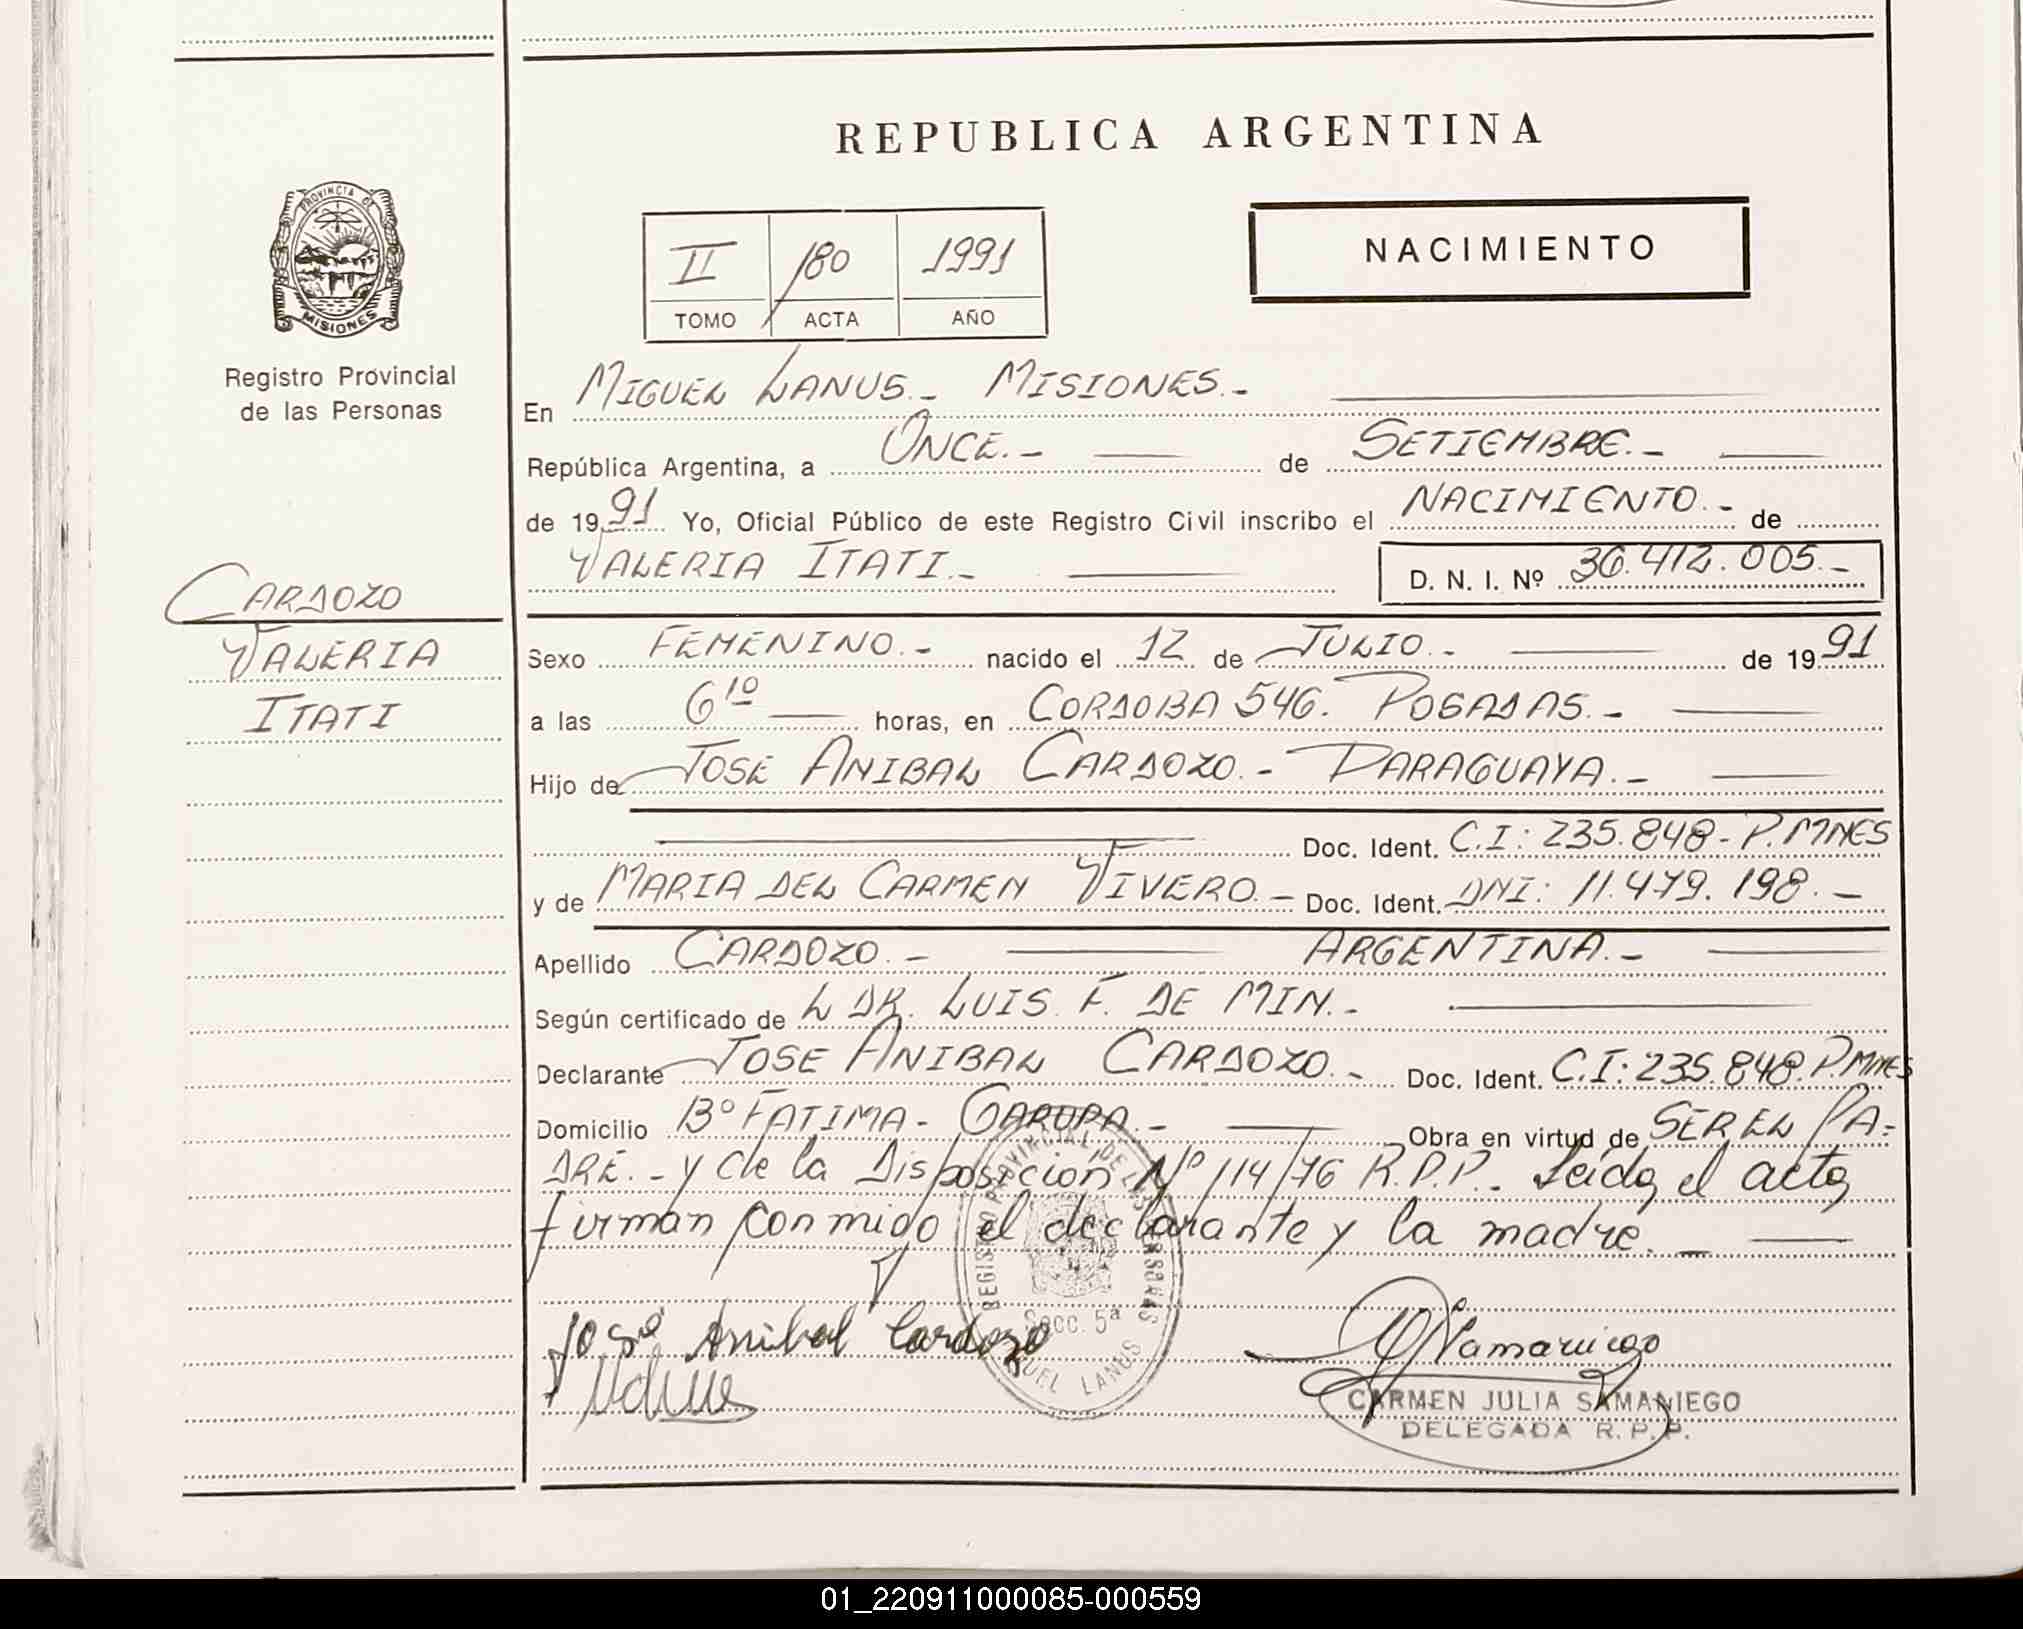 REPUBLICA ARGENTINA
PROVINCIA DE
MISIONES
Registro Provincial
de las Personas
II 180 1991
TOMO ACTA AÑO
NACIMIENTO
En MIGUEL LANUS.- MISIONES.-
República Argentina, a ONCE.- de SETIEMBRE.-
de 1991 Yo, Oficial Público de este Registro Civil inscribo el NACIMIENTO.- de
VALERIA ITATI.- D. N. I. Nº 36.412.005.-
CARDOZO
VALERIA
ITATI
Sexo FEMENINO.- nacido el 12 de JULIO.- de 1991
a las 6¹⁰ horas, en CORDOBA 546. POSADAS.-
Hijo de JOSE ANIBAL CARDOZO.- PARAGUAYA.-
Doc. Ident. C.I: 235.848-P.MNES
y de MARIA DEL CARMEN VIVERO.- Doc. Ident. DNI: 11.479.198.-
Apellido CARDOZO.- ARGENTINA.-
Según certificado de L DR. LUIS F. DE MIN.-
Declarante JOSE ANIBAL CARDOZO.- Doc. Ident. C.I: 235.848.P.MNES
Domicilio Bº FATIMA - GARUPA.- Obra en virtud de SER EL PA-
DRE.- y de la Disposición Nº 114/76 R.P.P.- Leida el acta
firman conmigo el declarante y la madre.-
REGISTRO PROVINCIAL DE LAS PERSONAS
Secc. 5ª
MIGUEL LANUS
José Anibal Cardozo
Samaniego
CARMEN JULIA SAMANIEGO
DELEGADA R. P. P.
01_220911000085-000559